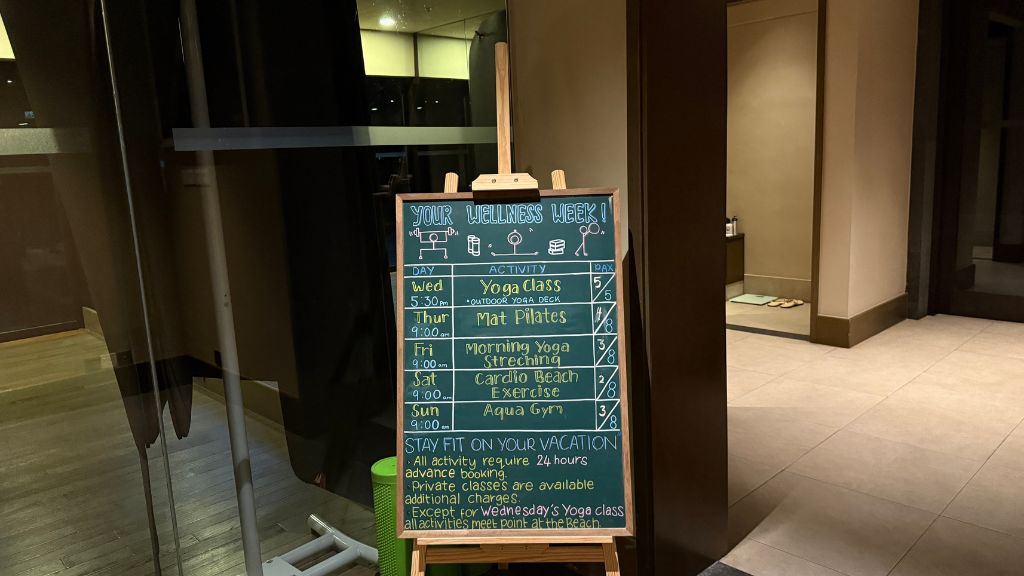 YOUR WELLNESS WEEK!
DAY ACTIVITY PAX
Wed Yoga Class 5/5
5:30pm *OUTDOOR YOGA DECK
Thur Mat Pilates 4/8
9:00am
Fri Morning Yoga 3/8
9:00am Streching
Sat Cardio Beach 2/8
9:00am Exercise
Sun Aqua Gym 3/8
9:00am
STAY FIT ON YOUR VACATION
· All activity require 24 hours
advance booking.
· Private classes are available
additional charges.
· Except for Wednesday's Yoga class
all activities meet point at the Beach